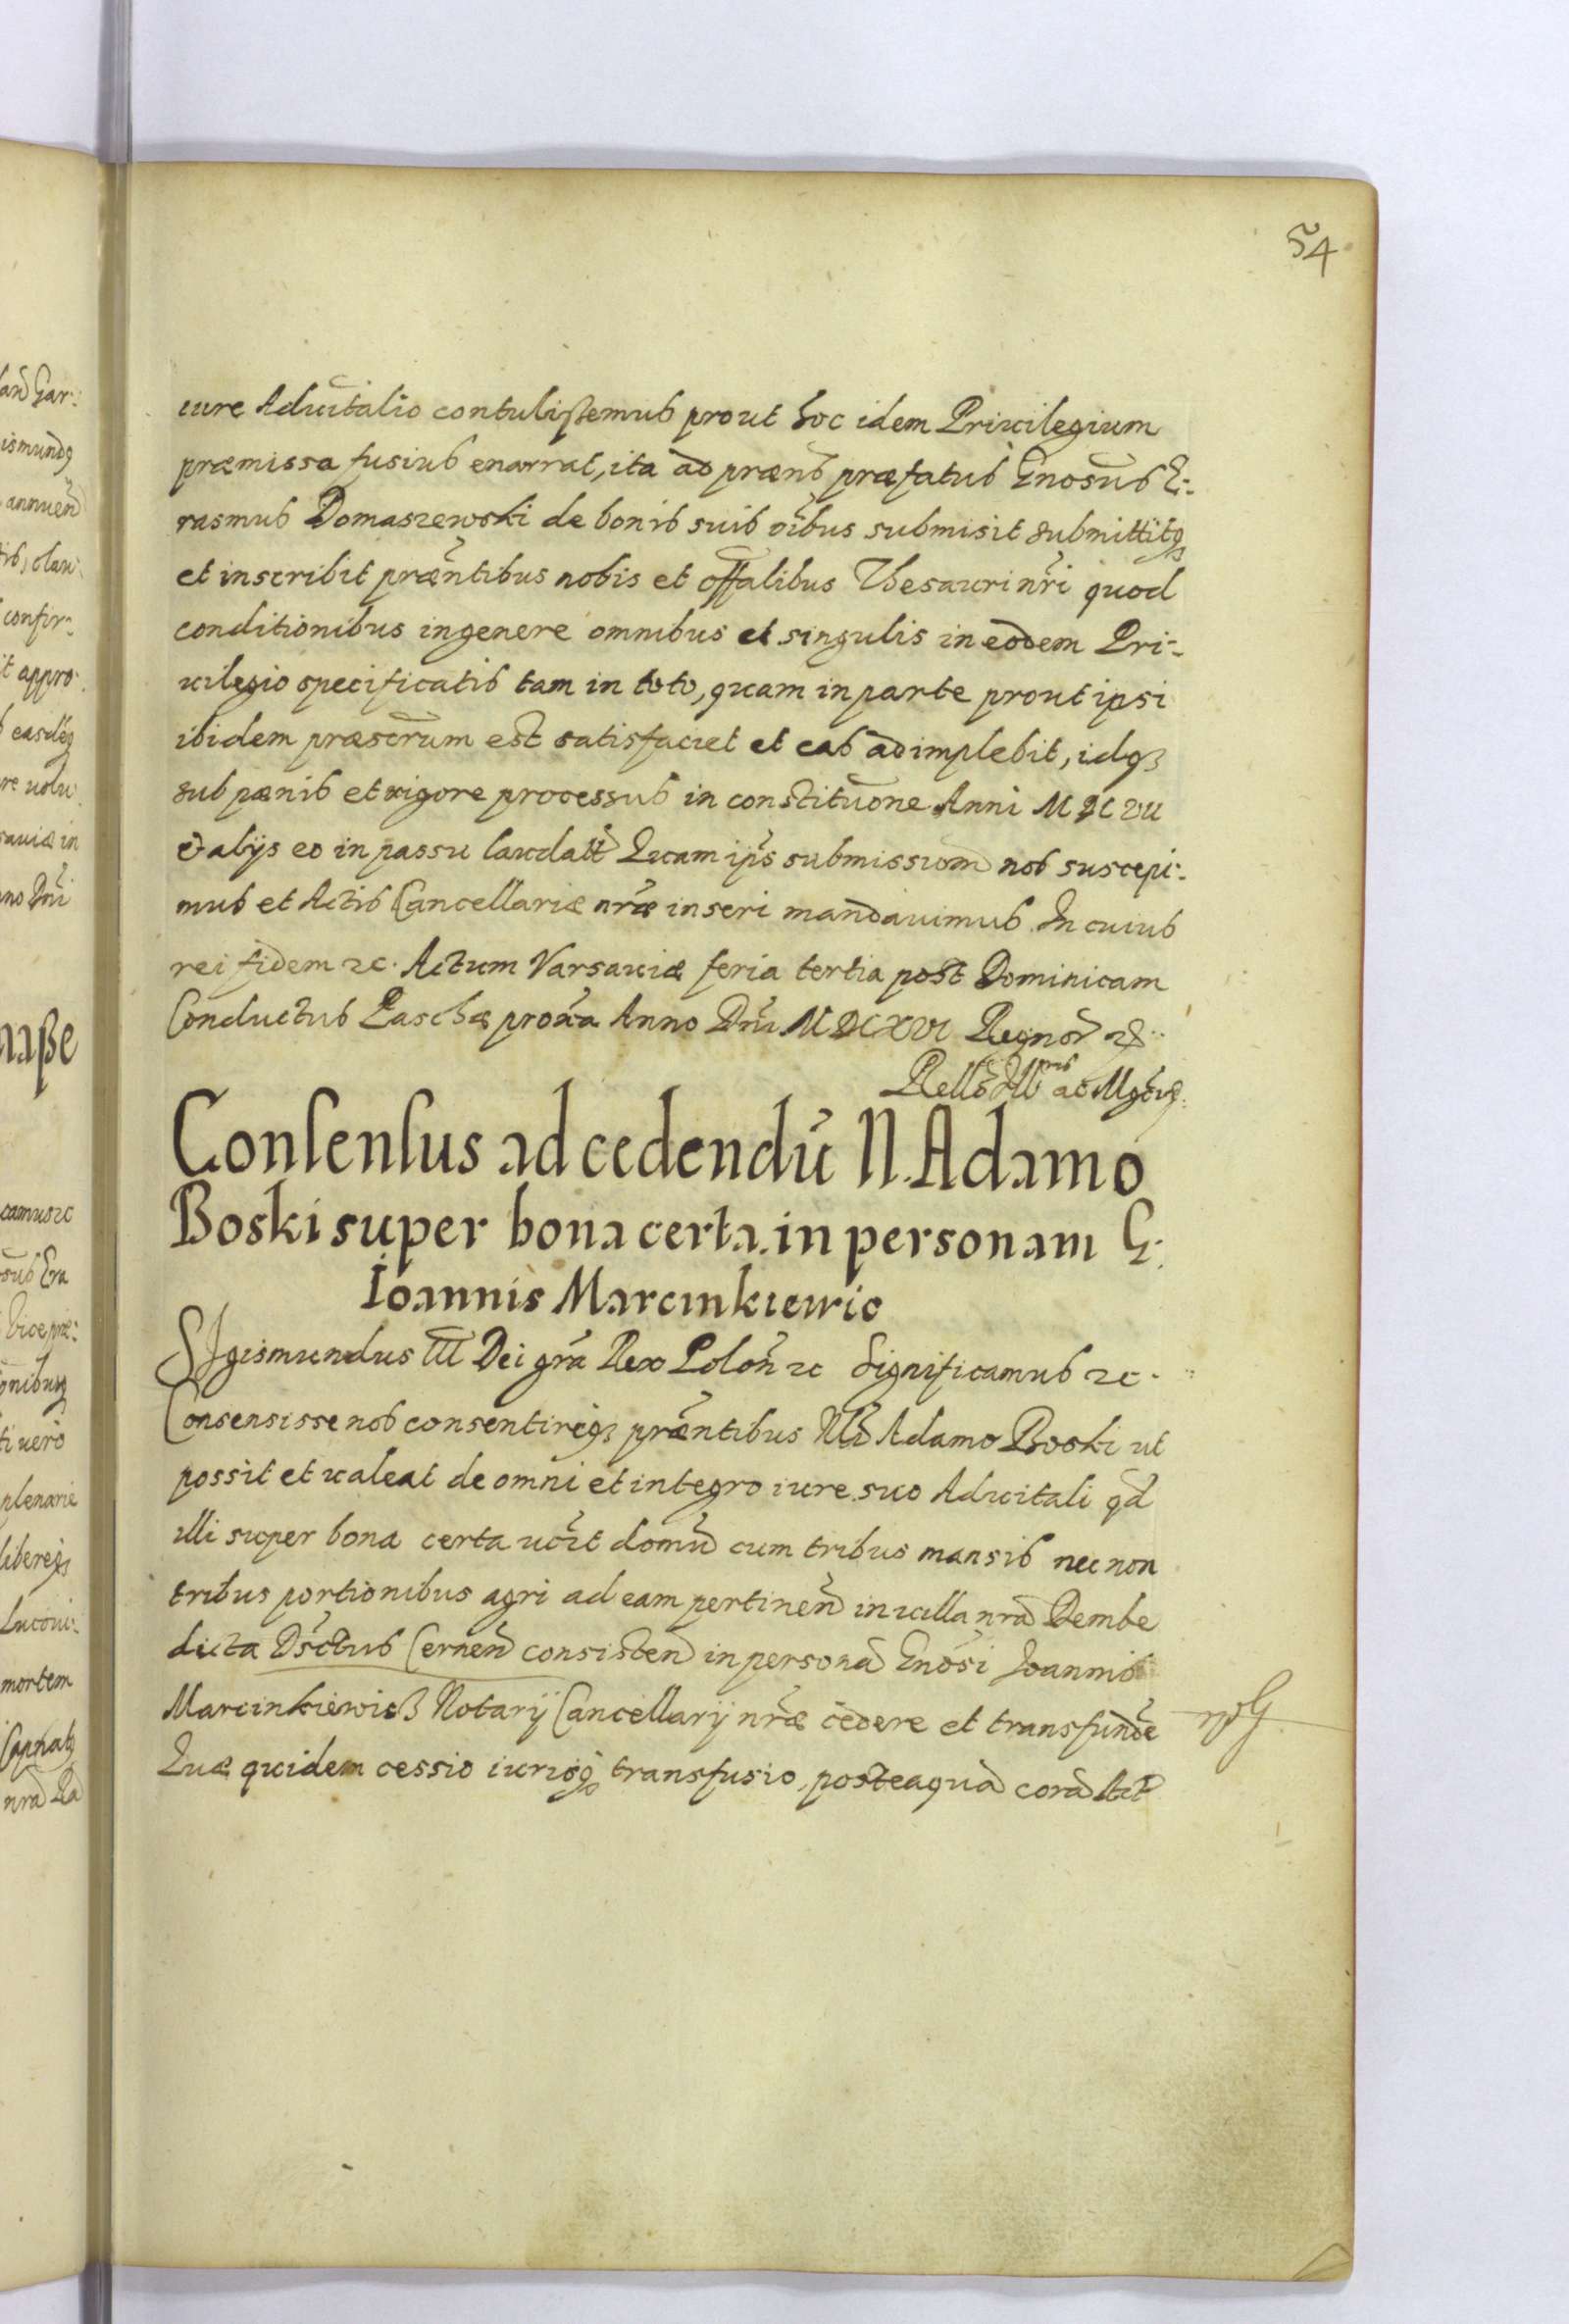 54
iure Aduitalio contulissemus prout hoc idem Priuilegium
præmissa fusius enarrat, ita ad præns præfatus Gnosus E-
rasmus Domaszewski de bonis suis oibus submisit submittitq
et inscribit præntibus nobis et offalibus Thesauri nri quod
conditionibus in genere omnibus et singulis in eodem Pri-
uilegio specificatis tam in toto, quam in parte prout ipsi
ibidem præscrum est satisfaciet et eas adimplebit, idq
sub pænis et rigore processus in constituone Anni MDCVII
& alijs eo in passu laudatt Quam ips submissiom nos suscepi-
mus et Actis Cancellariæ nræ inseri mandauimus. In cuius
rei fidem etc. Actum Varsauiæ feria tertia post Dominicam
Conductus Paschæ proxa Anno Dni MDCXVI Regnor etc
Rello Ill ac Mgci
Consensus ad cedendu N. Adamo
Boski super bona certa in personam G.
Ioannis Marcinkiewic
Sigismundus III Dei gra Rex Polon etc Significamus etc.
Consensisse nos consentireq præntibus Nli Adamo Boski ut
possit et ualeat de omni et integro iure suo Aduitali qd
illi super bona certa uczt domu cum tribus mansis nec non
tribus portionibus agri ad eam pertinen in uilla nra Dembe
dicta Dsctus Cernen consisten in persona Gnosi Joannis
Marcinkiewicz Notarij Cancellarij nræ cedere et transfunde
Quæ quidem cessio iurisq transfusio, posteaqua cora Act